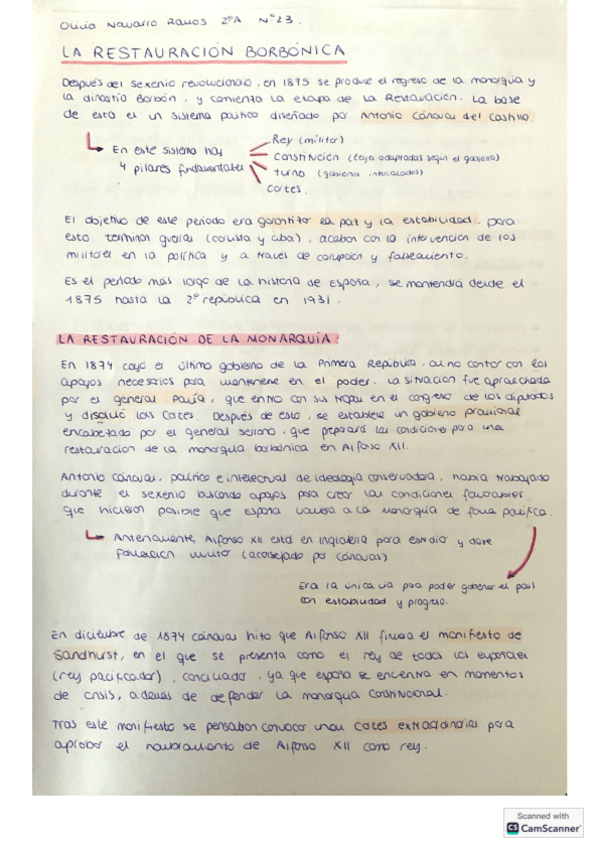 Olivia Navarro Ramos 2ºA Nº23.
LA RESTAURACIÓN BORBÓNICA
Después del sexenio revolucionario, en 1875 se produce el regreso de la monarquía y
la dinastía Borbón, y comienza la etapa de la Restauración. La base
de esta es un sistema político diseñado por Antonio Cánovas del Castillo.
En este sistema hay
4 pilares fundamentales
Rey (militar)
Constitución (leyes adaptadas según el gobierno)
turno (gobiernos intercalados)
cortes.
El objetivo de este periodo era garantizar la paz y la estabilidad, para
esto terminan guerras (carlista y cuba), acaban con la intervención de los
militares en la política y a través de corrupción y falseamiento.
Es el período más largo de la historia de España, se mantendrá desde el
1875 hasta la 2º república en 1931.
LA RESTAURACIÓN DE LA MONARQUÍA:
En 1874 cayó el último gobierno de la Primera República, al no contar con los
apoyos necesarios para mantenerse en el poder. La situación fue aprovechada
por el general Pavía, que entró con sus tropas en el congreso de los diputados
y disolvió las Cortes. Después de esto, se establece un gobierno provisional
encabezado por el general Serrano, que preparará las condiciones para una
restauración de la monarquía borbónica en Alfonso XII.
Antonio Cánovas, político e intelectual de ideología conservadora, había trabajado
durante el sexenio buscando apoyos para crear las condiciones favorables
que hicieran posible que España volviera a la monarquía de forma pacífica.
Anteriormente, Alfonso XII está en Inglaterra para estudiar y darse
formación militar (aconsejado por Cánovas)
Era la única vía para poder gobernar el país
con estabilidad y progreso.
En diciembre de 1874 Cánovas hizo que Alfonso XII firmara el manifiesto de
Sandhurst, en el que se presenta como el rey de todos los españoles
(rey pacificador), conciliador, ya que españa se encuentra en momentos
de crisis, además de defender la monarquía constitucional.
Tras este manifiesto se pensaban convocar unas cortes extraordinarias para
aprobar el nombramiento de Alfonso XII como rey.
Scanned with
CS CamScanner